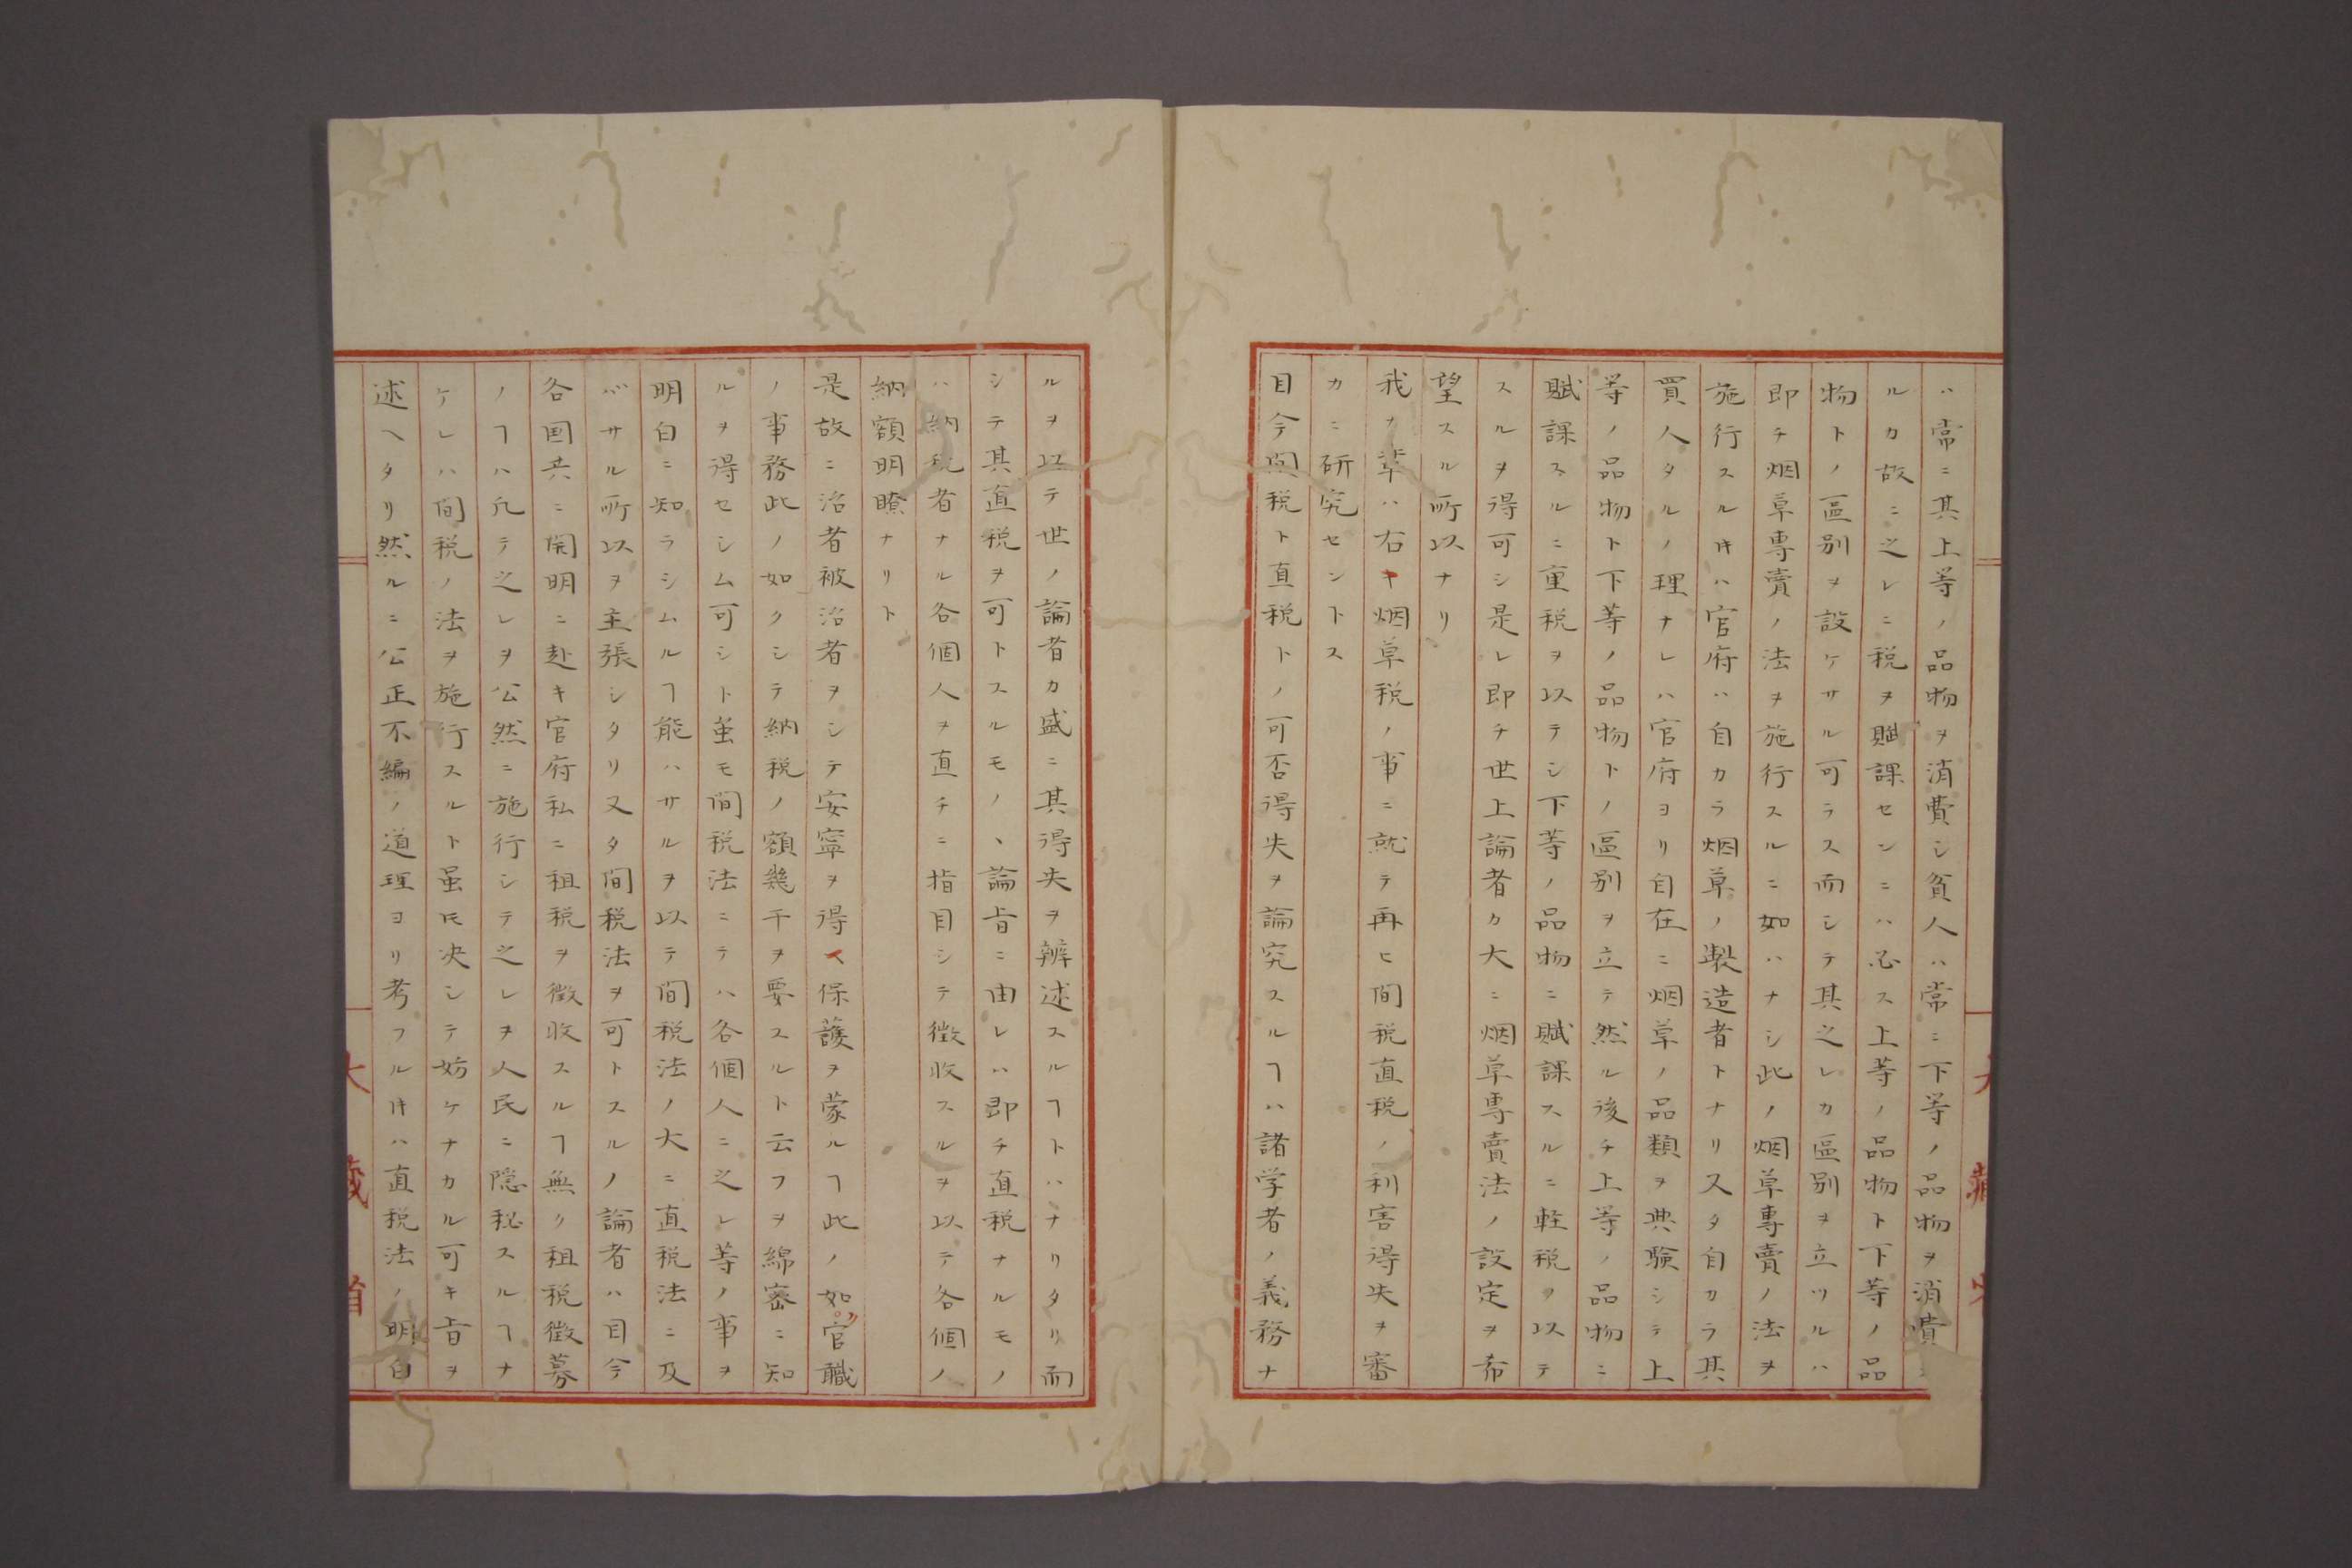 ハ常ニ其上等ノ品物ヲ消費シ貧人ハ常ニ下等ノ品物ヲ消費ス
ルカ故ニ之レニ税ヲ賦課センニハ必ス上等ノ品物ト下等ノ品
物トノ區別ヲ設ケサル可ラス而シテ其之レカ區別ヲ立ツルハ
即チ烟草専賣ノ法ヲ施行スルニ如ハナシ此ノ烟草專賣ノ法ヲ
施行スルㇳキハ官府ハ自カラ烟草ノ製造者トナリ又タ自カラ其
買人タルノ理ナレハ官府ヨリ自在ニ烟草ノ品類ヲ典験シテ上
等ノ品物ト下等ノ品物トノ區別ヲ立テ然ル後チ上等ノ品物ニ
賦課スルニ重税ヲ以テシ下等ノ品物ニ賦課スルニ軽税ヲ以テ
スルヲ得可シ是レ即チ世上論者カ大ニ烟草専賣法ノ設定ヲ希
望スル所以ナリ
我カ輩ハ右キ烟草税ノ事ニ就テ再ヒ間税直税ノ利害得失ヲ審
カニ研究セントス
目今間税ト直税トノ可否得失ヲ論究スルヿハ諸学者ノ義務ナ
ルヲ以テ世ノ論者カ盛ニ其得失ヲ辨述スルヿトハナリタリ而
シテ其直税ヲ可トスルモノヽ論旨ニ由レハ即チ直税ナルモノ
ハ納税者ナル各個人ヲ直チニ指目シテ徴收スルヲ以テ各個ノ
納額明瞭ナリト
是故ニ治者被治者ヲシテ安寧ヲ得ヘ保護ヲ蒙ルヿ此ノ如ク官職
ノ事務此ノ如クシテ納税ノ額幾干ヲ要スルト云フヲ綿密ニ知
ルヲ得セシム可シト茧モ間税法ニテハ各個人ニ之レ等ノ事ヲ
明白ニ知ラシムルヿ能ハサルヲ以テ間税法ノ大ニ直税法ニ及
バサル所以ヲ主張シタリ又タ間税法ヲ可トスルノ論者ハ目今
各国共ニ開明ニ赴キ官府私ニ租税ヲ徴收スルヿ無ク租税徴募
ノヿハ凢テ之レヲ公然ニ施行シテ之レヲ人民ニ隠秘スルヿナ
ケレハ間税ノ法ヲ施行スルト虽𪜈决シテ妨ケナカル可キ旨ヲ
述ヘタリ然ルニ公正不編ノ道理ヨリ考フルㇳキハ直税法ノ明白
大藏省